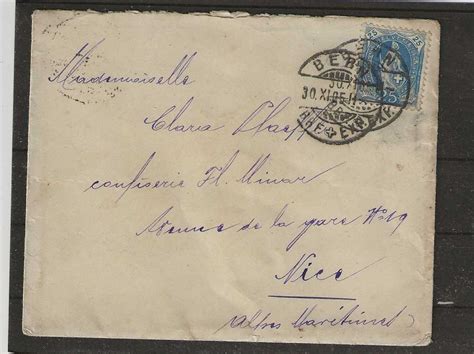 25 25
BERN
30.XI.05-11
BRF EXP
Mademoiselle
Clara
confiserie Fl. Minar
Avenue de la gare No 19
Nice
Alpes Maritimes